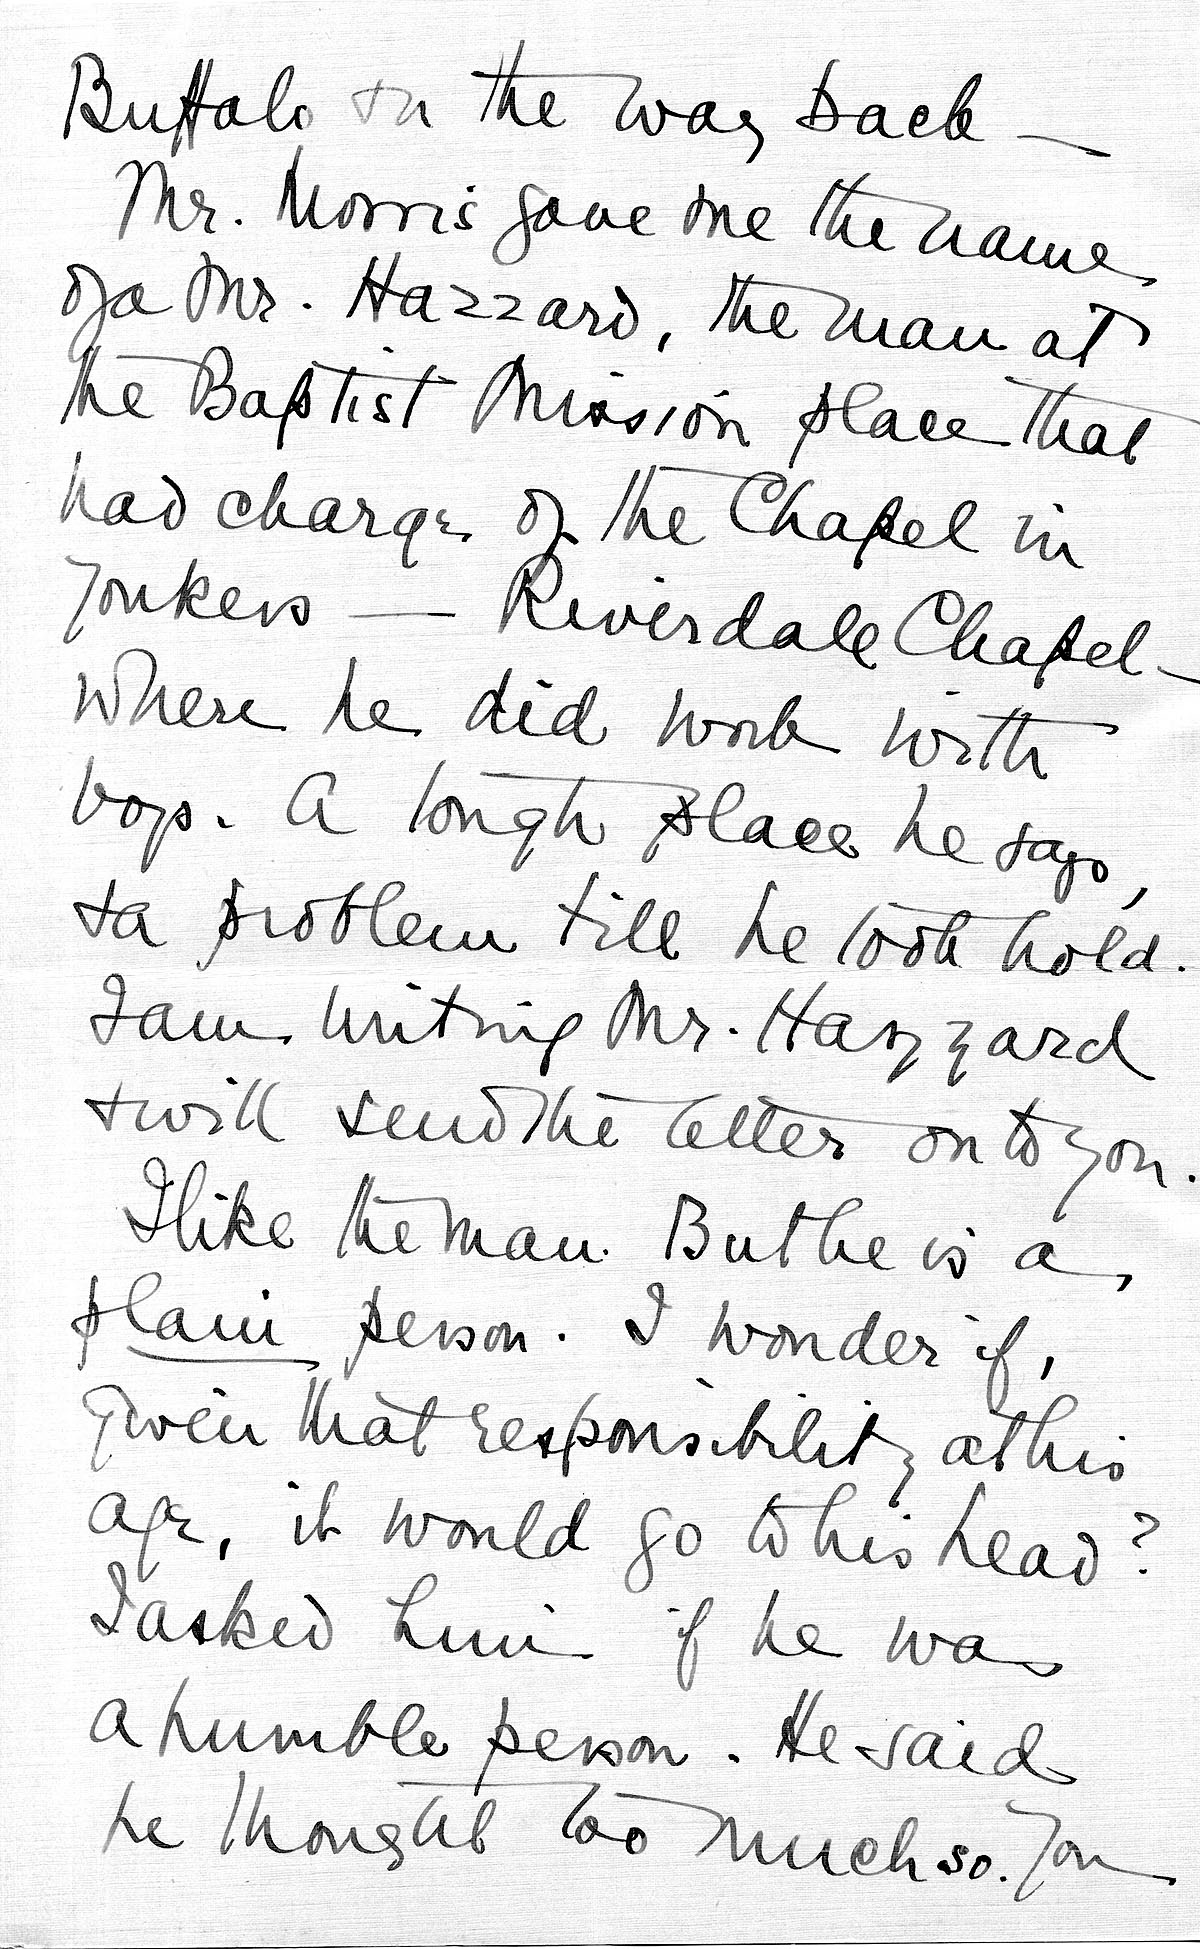 Buffalo on the way back —
Mr. Morris gave me the name
of a Mr. Hazzard, the man at
the Baptist Mission place that
had charge of the Chapel in
Yonkers — Riverdale Chapel —
where he did work with
boys. A tough place he says,
+ a problem till he took hold.
I am writing Mr. Hazzard
+ will send the letter on to you.
I like the man. But he is a
plain person. I wonder if,
given that responsibility at his
age, it would go to his head?
I asked him if he was
a humble person. He said
he thought too much so. You